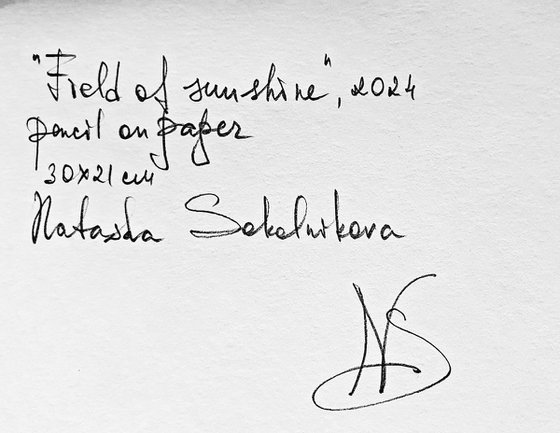 "Field of sunshine", 2024
pencil on paper
30x21 cm
Natasha Sokolnikova
NS